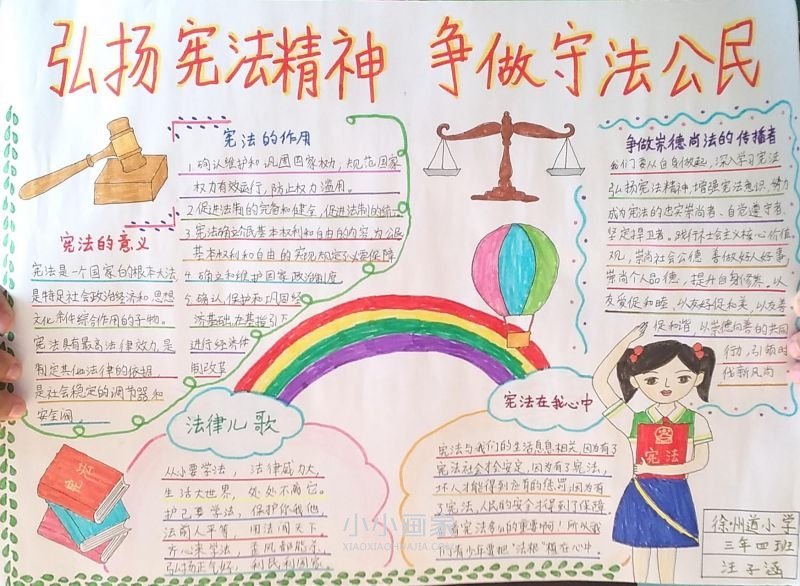 弘扬宪法精神 争做守法公民
宪法的作用
1.确认维护和巩固国家权力,规范国家
权力有效运行,防止权力滥用。
2.促进法制的完备和健全,促进法制的统一
3.宪法确立公民基本权利和自由的内容,为公民
基本权利和自由的实现规定了必要保障
4.确立和维护国家政治制度
5.确认,保护和巩固经
济基础,在其指引下
进行经济体
制改革
宪法的意义
宪法是一个国家的根本大法,
是特定社会政治经济和思想
文化条件综合作用的产物。
宪法具有最高法律效力,是
制定其他法律的依据,
是社会稳定的调节器和
安全阀
争做崇德尚法的传播者
我们要从自身做起,深入学习宪法
弘扬宪法精神,增强宪法意识,努力
成为宪法的忠实崇尚者、自觉遵守者、
坚定捍卫者。践行社会主义核心价值
观,崇尚社会公德,多做好人好事,
崇尚个人品德,提升自身修养。以
友爱促和睦,以友好促和美,以友善
促和谐,以崇德向善的共同
行动,引领时
代新风尚
法律儿歌
从小要学法,法律威力大,
生活大世界,处处不离它。
护己要学法,保护你我他,
法前人平等,用法闯天下。
齐心来学法,
弘扬正气好,利民利国家
宪法在我心中
宪法与我们的生活息息相关,因为有了
宪法社会才会安定,因为有了宪法,
坏人才能得到应有的惩罚,因为有
了宪法,人民的安全才得到了保障,
宪法多么的重要啊!所以我
青少年要把"法根"植在心中。
宪法
徐州道小学
三年四班
汪子涵
小小画家
XIAOXIAOHUAJIA.COM